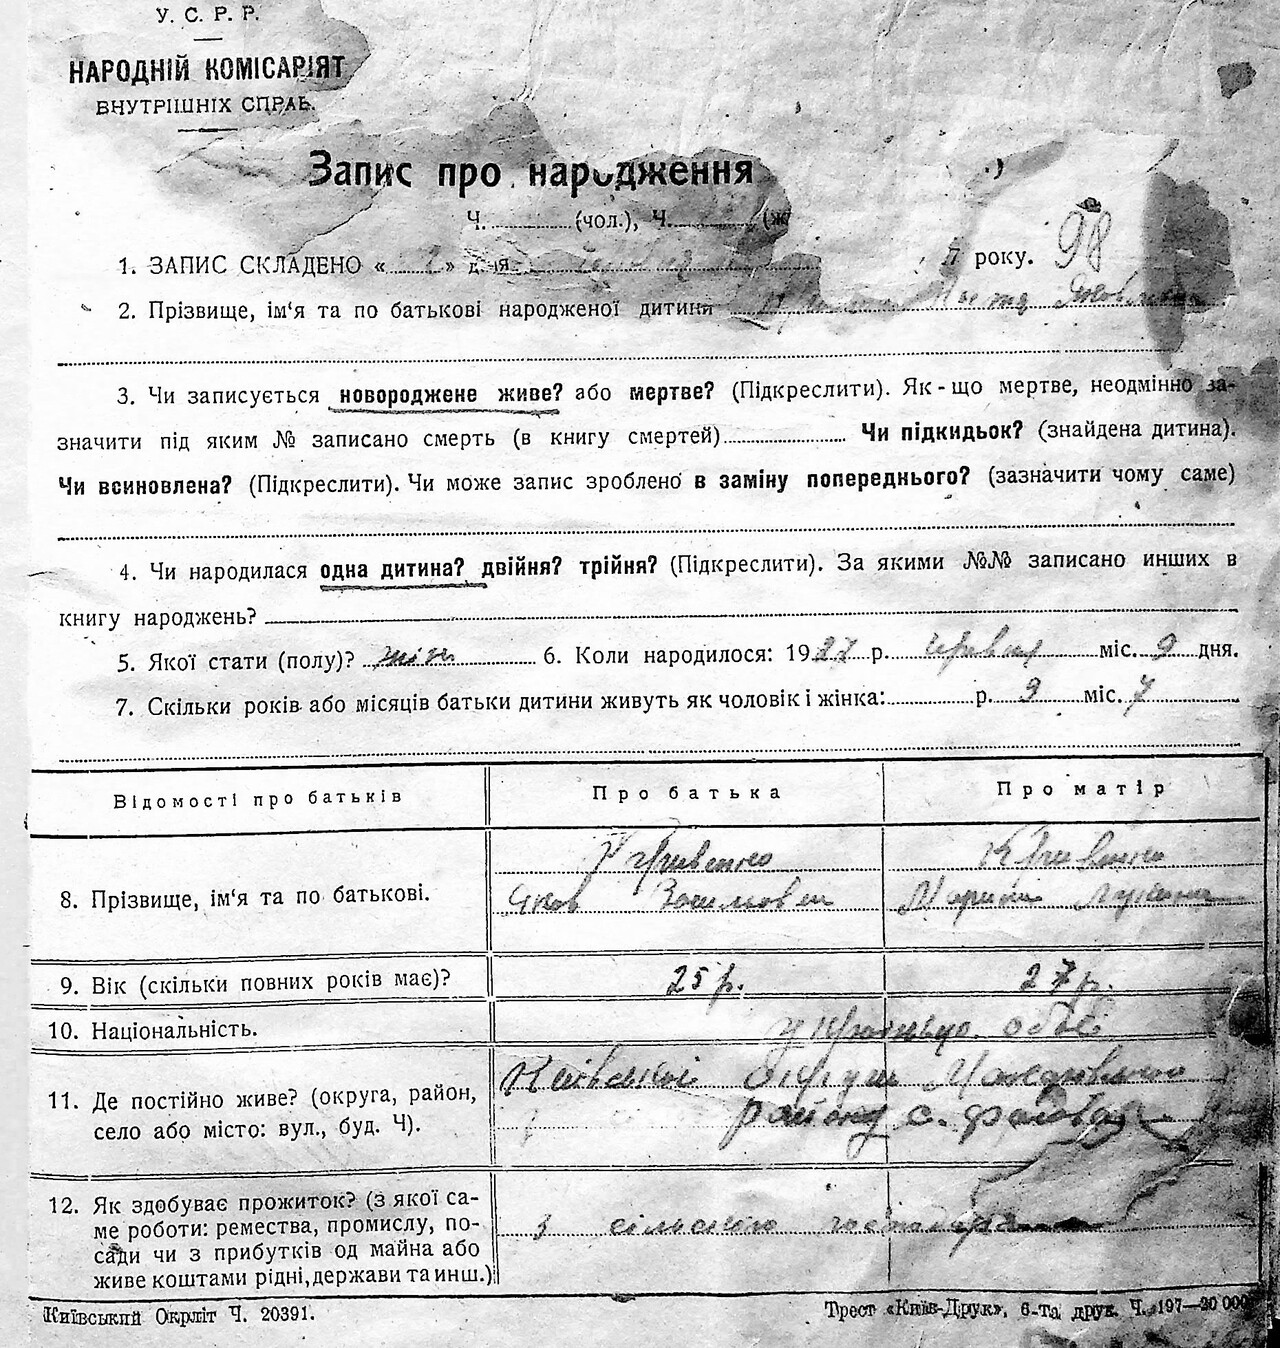 У. С. Р. Р.
НАРОДНІЙ КОМІСАРІЯТ
ВНУТРІШНІХ СПРАВ.
Запис про народження
Ч. (чол.), Ч. (ж
1. ЗАПИС СКЛАДЕНО « » дня 7 року. 98
2. Прізвище, ім‘я та по батькові народженої дитини
3. Чи записується новороджене живе? або мертве? (Підкреслити). Як-що мертве, неодмінно за-
значити під яким № записано смерть (в книгу смертей) Чи підкидьок? (знайдена дитина).
Чи всиновлена? (Підкреслити). Чи може запис зроблено в заміну попереднього? (зазначити чому саме)
4. Чи народилася одна дитина? двійня? трійня? (Підкреслити). За якими №№ записано инших в
книгу народжень?
5. Якої стати (полу)? жін 6. Коли народилося: 1927 р. червня міс. 9 дня.
7. Скільки років або місяців батьки дитини живуть як чоловік і жінка: р. 9 міс. 7
Відомості про батьків Про батька Про матір
8. Прізвище, ім‘я та по батькові.
Яков
9. Вік (скільки повних років має)? 25 р. 27 р.
10. Національність. українці обоє
11. Де постійно живе? (округа, район,
село або місто: вул., буд. Ч).
Київської округи Макарівського
району с.
12. Як здобуває прожиток? (з якої са-
ме роботи: ремества, промислу, по-
сади чи з прибутків од майна або
живе коштами рідні, держави та инш.)
з сільского господарства
Київський Окрліт Ч. 20391.
Трест «Київ-Друк», 6-та друк. Ч. 197—20 000